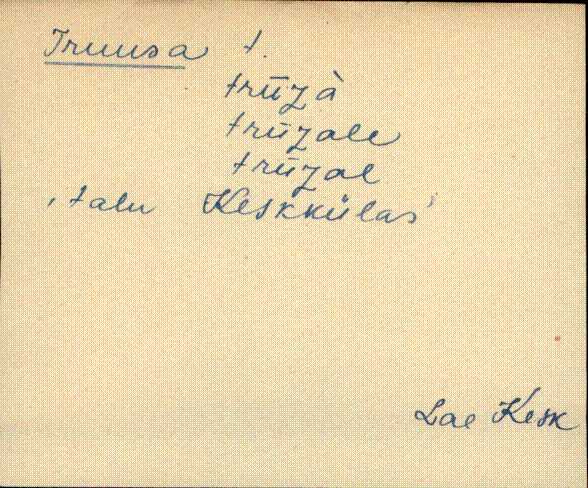 Truusa t.
trūzà
trūzale
trūzal
, talu Keskkülas
Lae Kesk